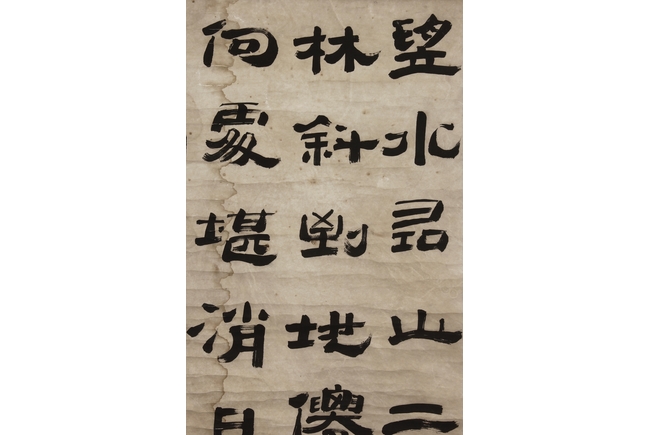 望水尋山二
林斜到地僊
何處堪消日